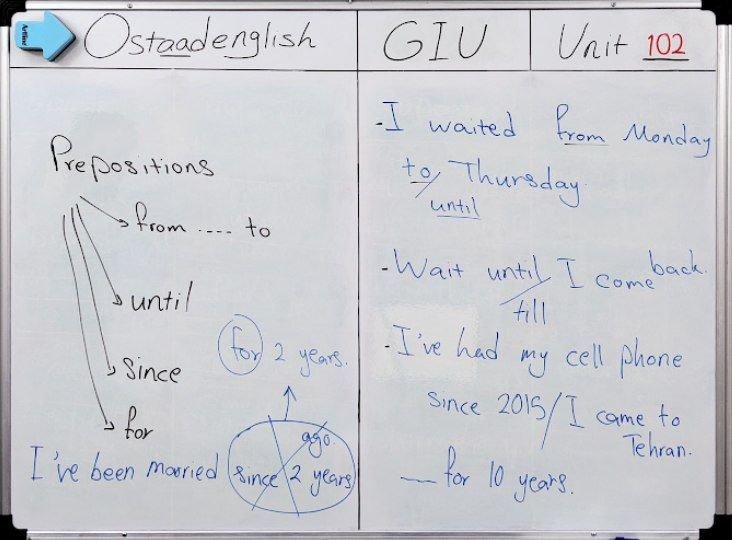 Ostaadenglish
GIU
Unit 102
Prepositions
from .... to
until
since
for
for 2 years.
ago
I've been married since 2 years
- I waited from Monday
to/ Thursday.
until
- Wait until/ I come back.
till
- I've had my cell phone
since 2015/ I came to
Tehran.
__ for 10 years.